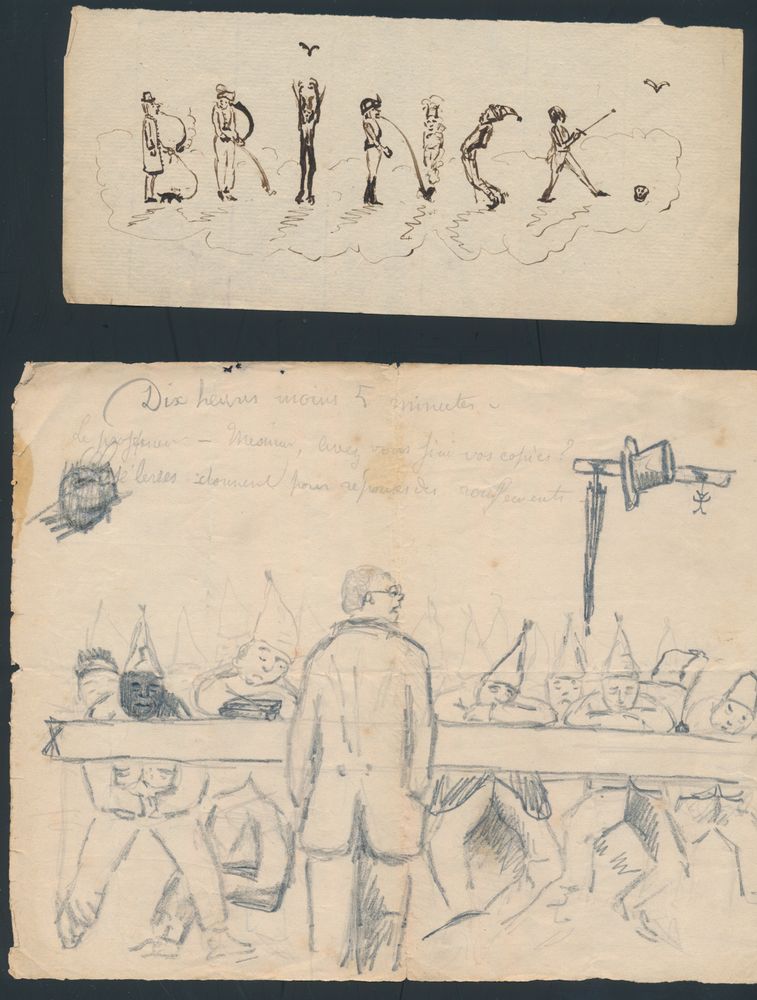 BRINCK.
Dix heures moins 5 minutes.
Le professeur — Messieurs, avez vous fini vos copies?
élèves donnent pour réponses des ronflements